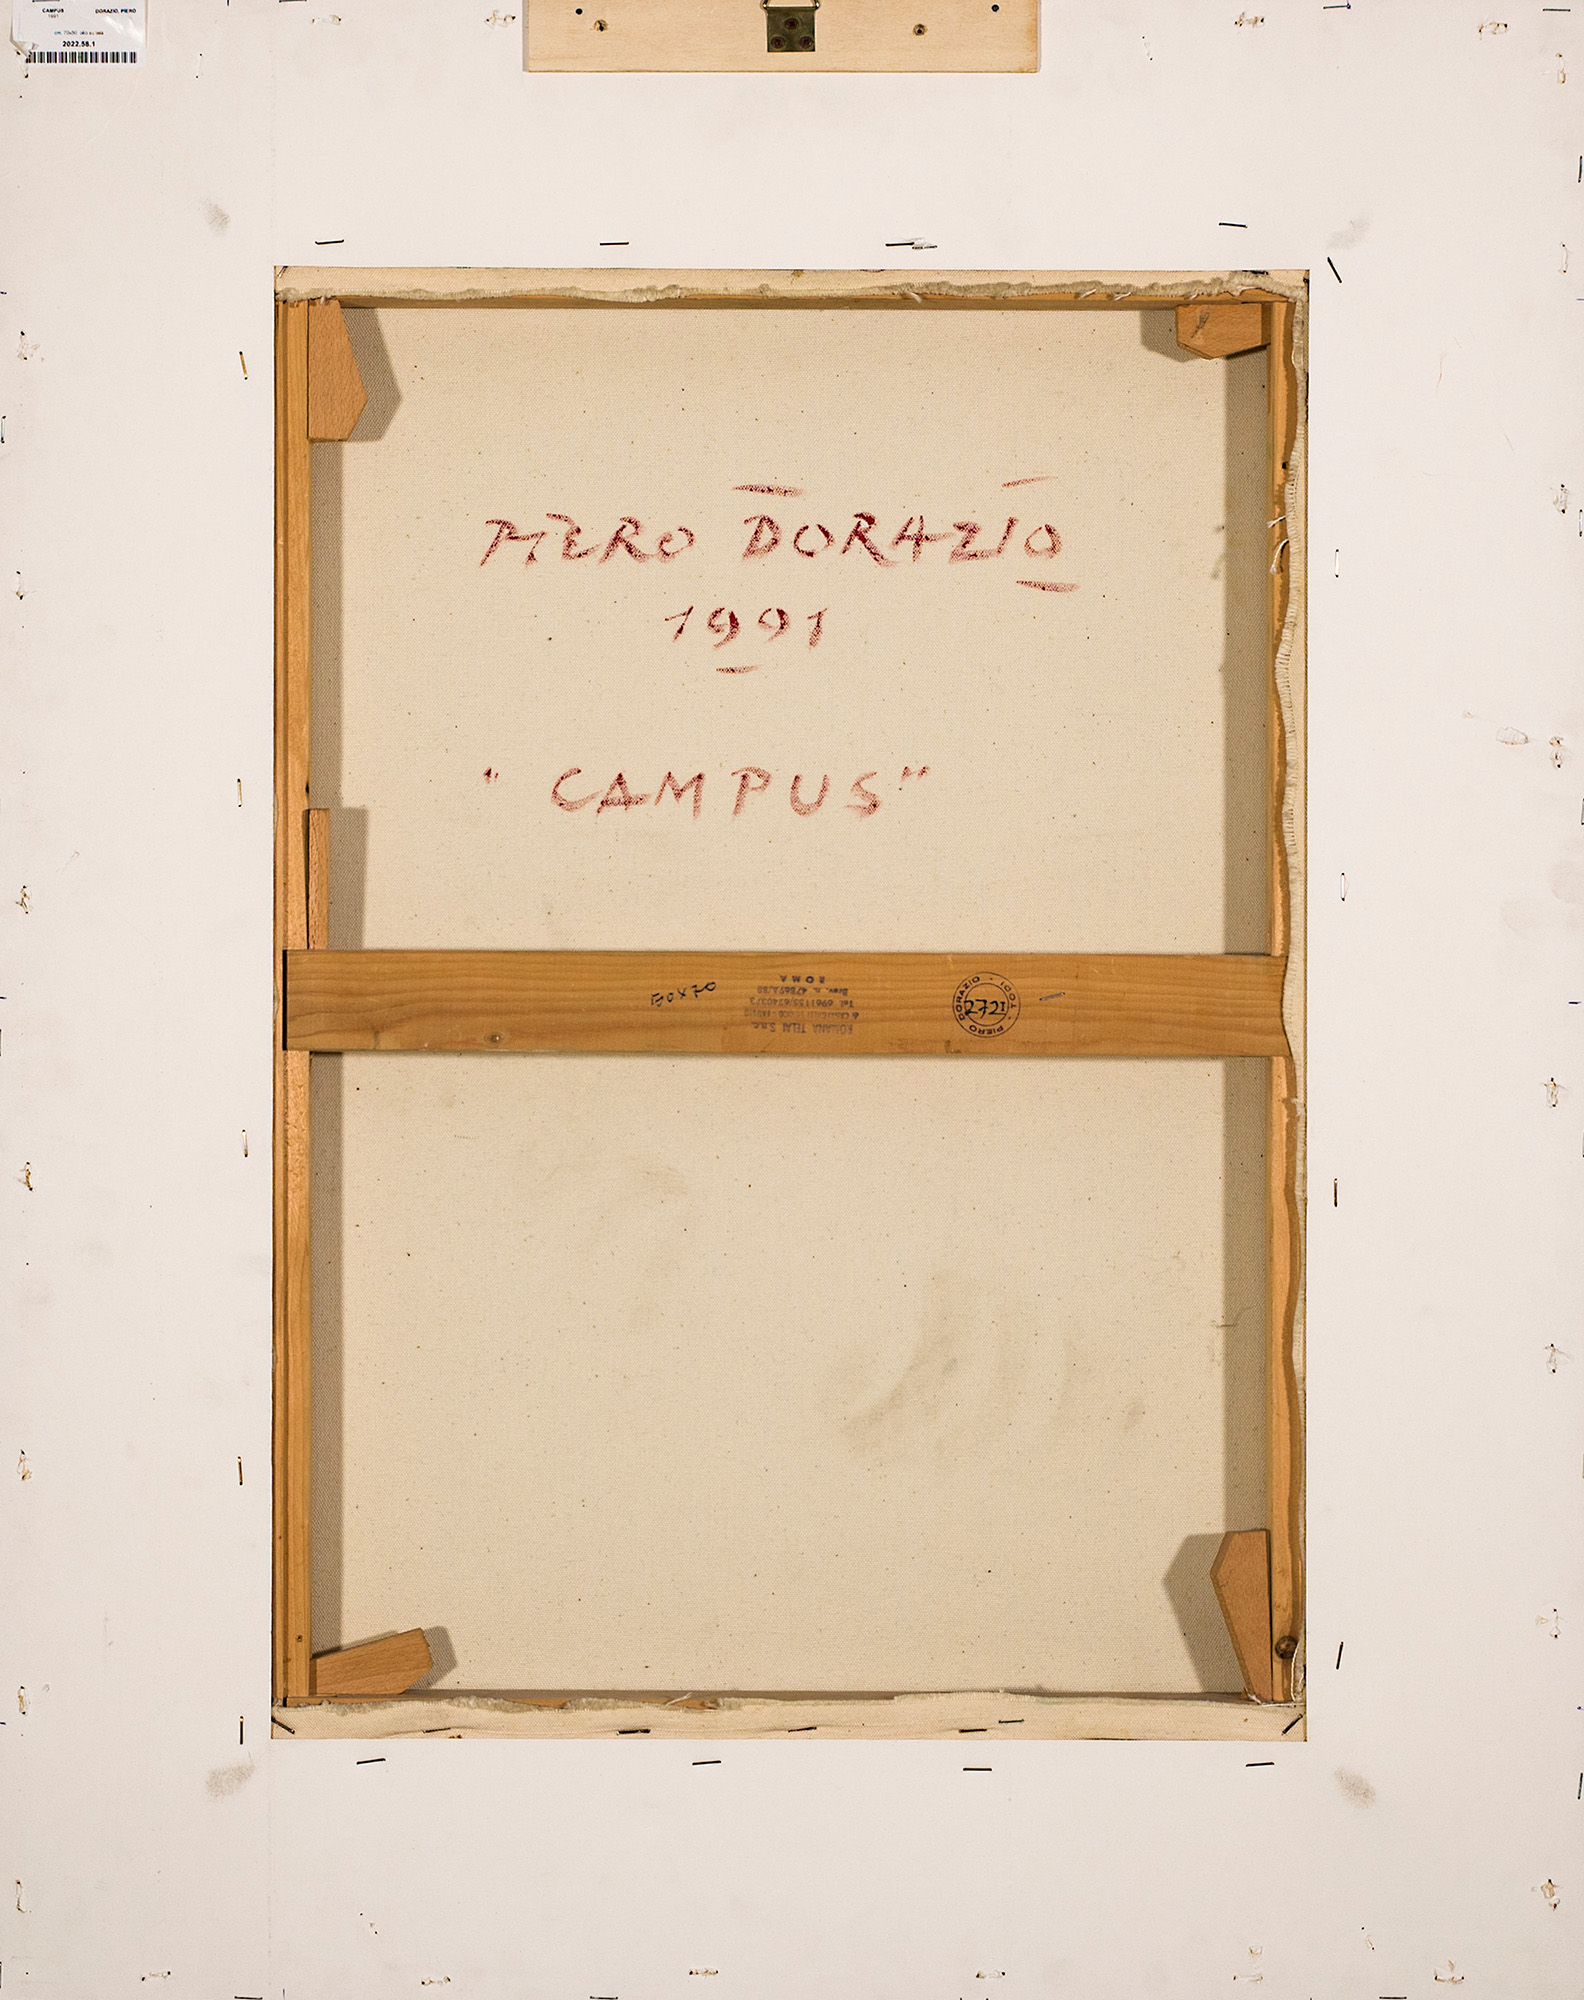 CAMPUS DORAZIO, PIERO
1991
cm. 70x50 olio su tela
2022.58.1
PIERO DORAZIO
1991
" CAMPUS"
50x70
ROMANA TELAI S.n.c.
Tel. 6961155/6240373
ROMA
PIERO DORAZIO · TODI ·
2721